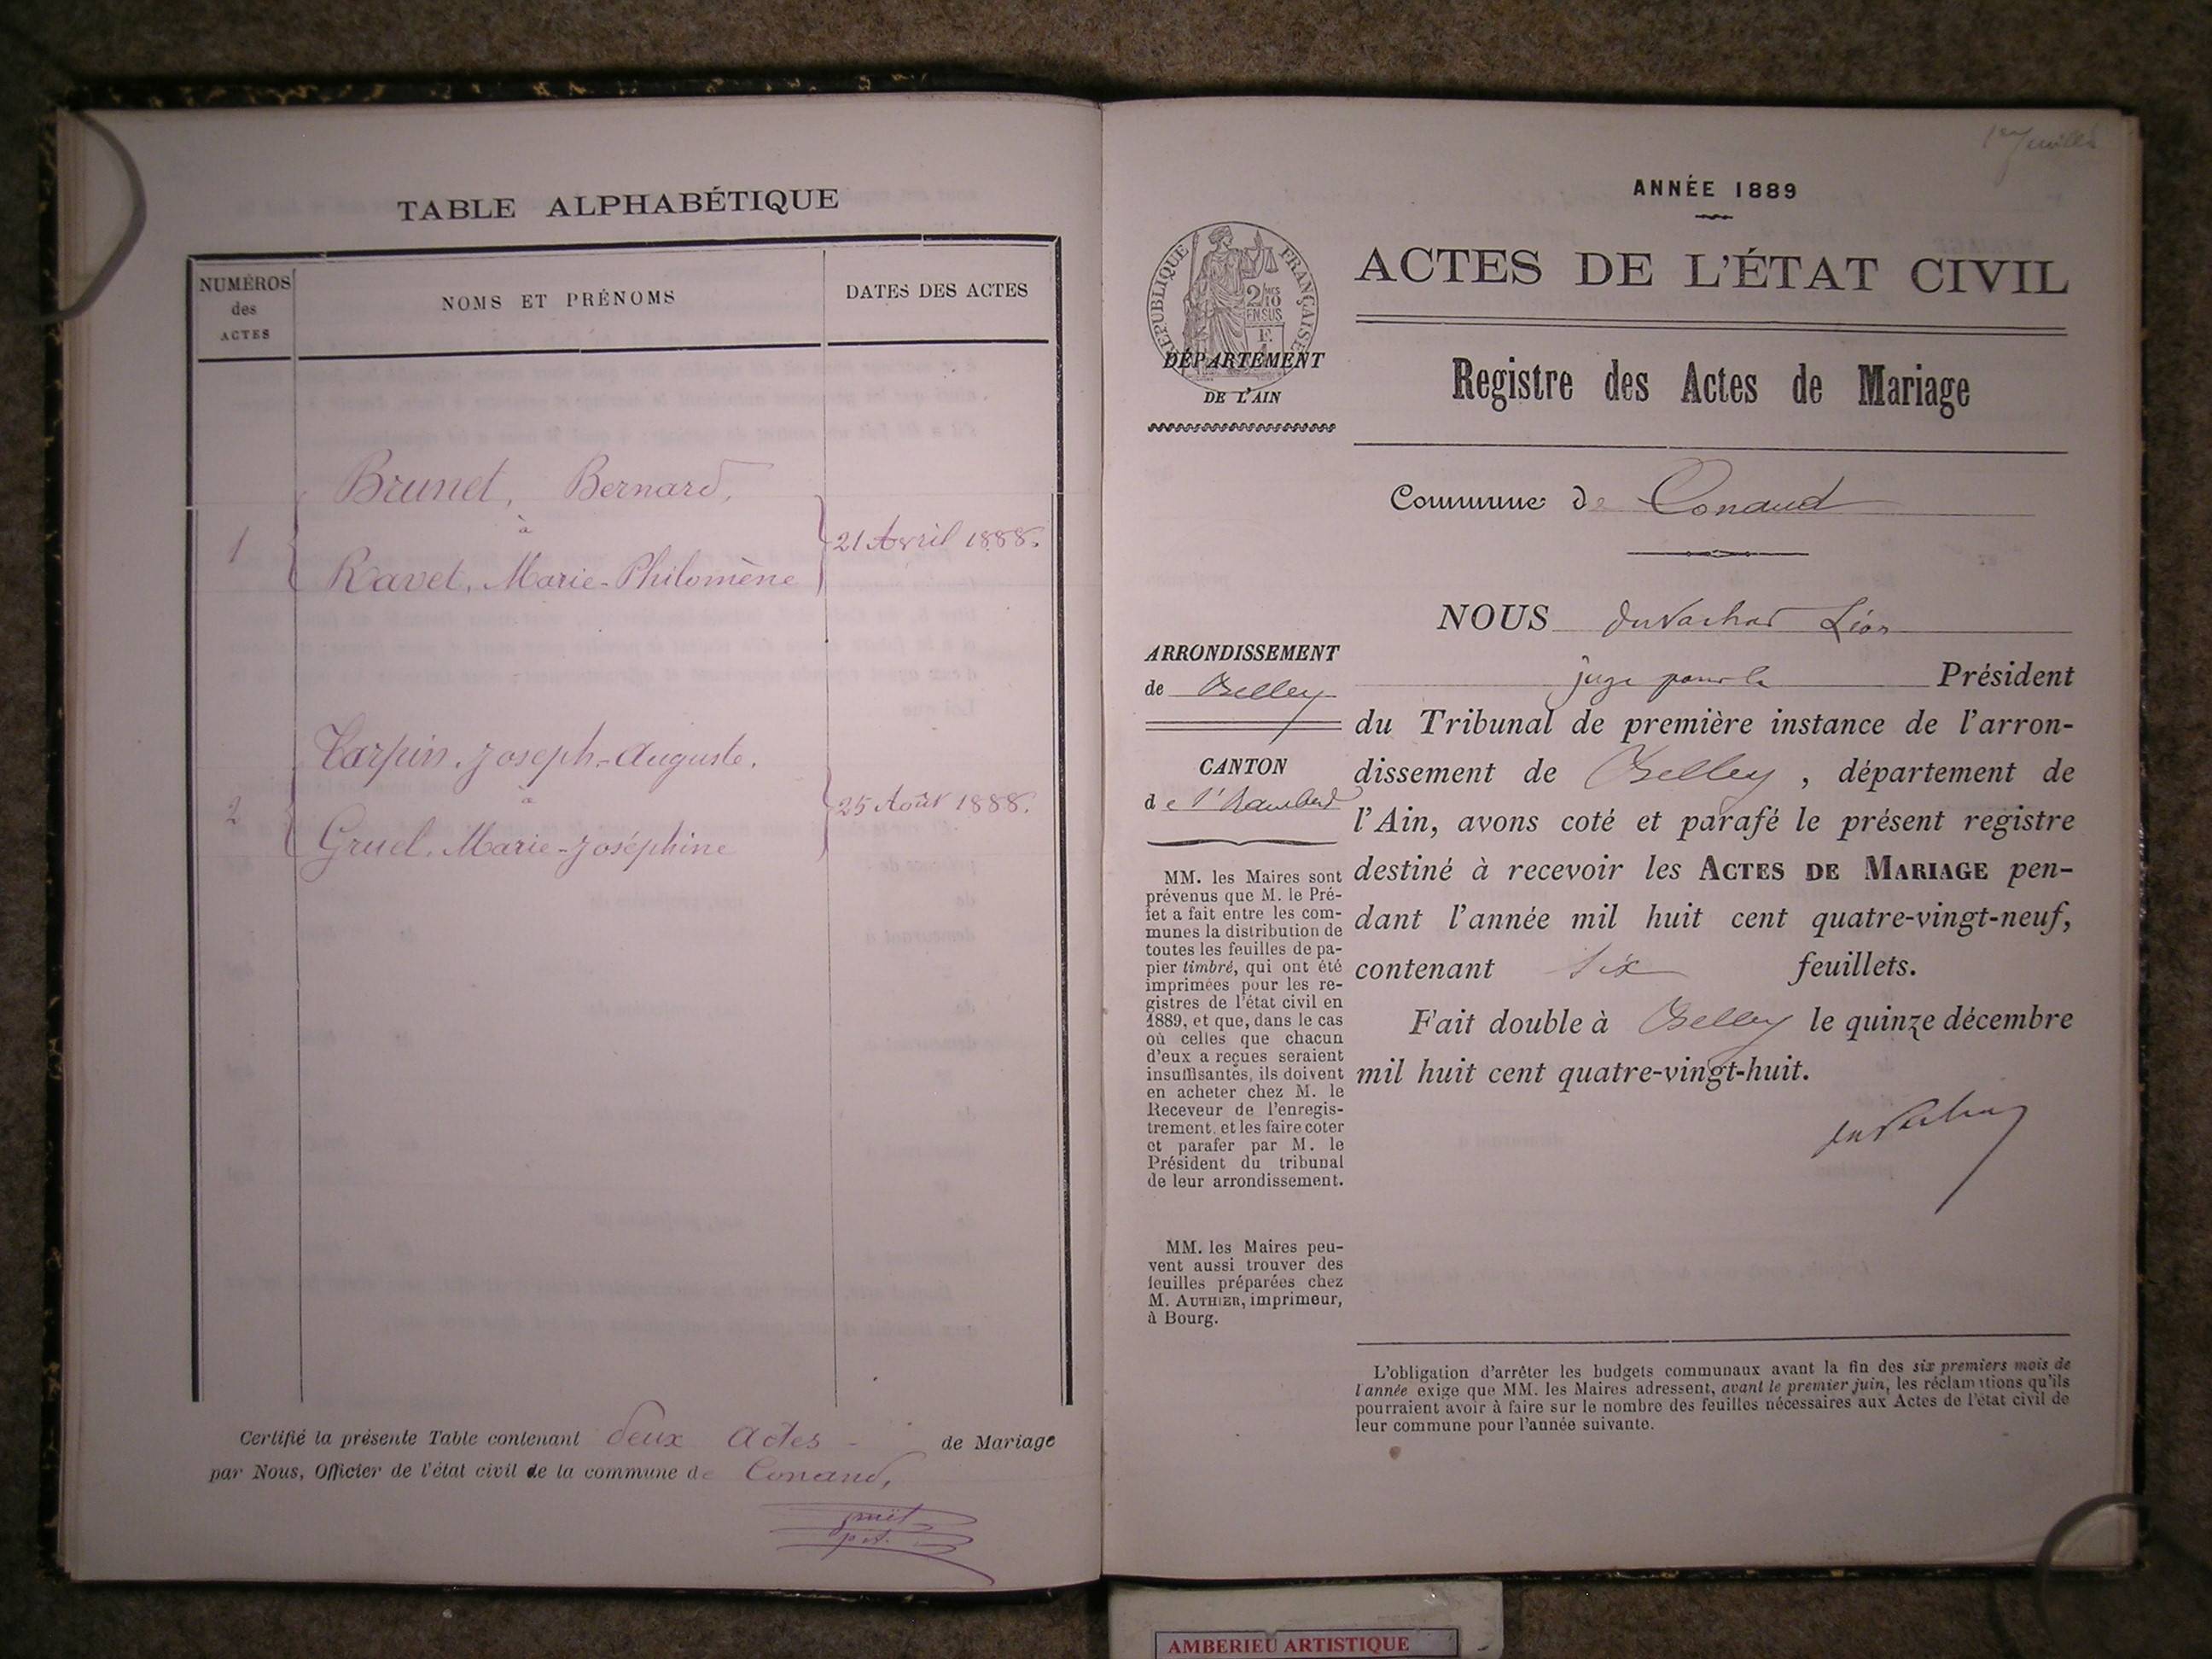 TABLE ALPHABÉTIQUE
NUMÉROS des ACTES
NOMS ET PRÉNOMS
DATES DES ACTES
Brunet, Bernard,
1 à 21 Avril 1888.
Ravet, Marie-Philomène
Tarpin, Joseph-Auguste,
2 à 25 Août 1888.
Gruel, Marie-Joséphine
Certifié la présente Table contenant deux Actes - de Mariage
par Nous, Officier de l'état civil de la commune de Conand,
1er
ANNÉE 1889
RÉPUBLIQUE FRANÇAISE
2/10
EN SUS
DÉPARTEMENT
DE L'AIN
ACTES DE L'ÉTAT CIVIL
Registre des Actes de Mariage
Commune de Conand
ARRONDISSEMENT
de Belley
CANTON
de St Rambert
MM. les Maires sont
prévenus que M. le Pré-
fet a fait entre les com-
munes la distribution de
toutes les feuilles de pa-
pier timbré, qui ont été
imprimées pour les re-
gistres de l'état civil en
1889, et que, dans le cas
où celles que chacun
d'eux a reçues seraient
insuffisantes, ils doivent
en acheter chez M. le
Receveur de l'enregis-
trement, et les faire coter
et parafer par M. le
Président du tribunal
de leur arrondissement.
MM. les Maires peu-
vent aussi trouver des
feuilles préparées chez
M. AUTHIER, imprimeur,
à Bourg.
NOUS Duvachat Léon
juge pour le Président
du Tribunal de première instance de l'arron-
dissement de Belley, département de
l'Ain, avons coté et parafé le présent registre
destiné à recevoir les ACTES DE MARIAGE pen-
dant l'année mil huit cent quatre-vingt-neuf,
contenant six feuillets.
Fait double à Belley le quinze décembre
mil huit cent quatre-vingt-huit.
L'obligation d'arrêter les budgets communaux avant la fin des six premiers mois de
l'année exige que MM. les Maires adressent, avant le premier juin, les réclamations qu'ils
pourraient avoir à faire sur le nombre des feuilles nécessaires aux Actes de l'état civil de
leur commune pour l'année suivante.
AMBERIEU ARTISTIQUE